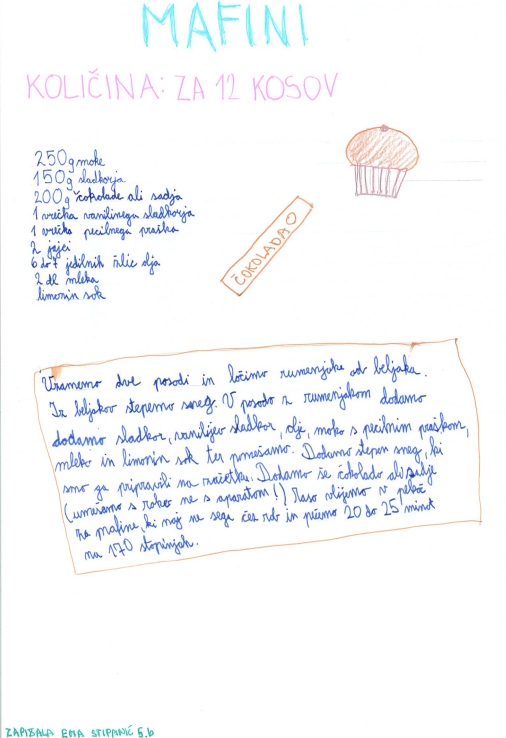 MAFINI
KOLIČINA: ZA 12 KOSOV
250g moke
150g sladkorja
200g čokolade ali sadja
1 vrečka vanilinega sladkorja
1 vrečka pecilnega praška
2 jajci
6 do 7 jedilnih žlic olja
2 dl mleka
limonin sok
ČOKOLADA♡
Vzamemo dve posodi in ločimo rumenjake od beljaka.
Iz beljakov stepemo sneg. V posodo z rumenjakom dodamo
dodamo sladkor, vanilijev sladkor, olje, moko s pecilnim praškom,
mleko in limonin sok ter pomešamo. Dodamo stepen sneg, ki
smo ga pripravili na začetku. Dodamo še čokolado ali sadje
(umešamo s roko ne s aparatom!) Maso vlijemo v pekač
za mafine, ki naj ne sega čez rob in pečemo 20 do 25 minut
na 170 stopinjah.
ZAPISALA EMA STIPANIČ 5.b